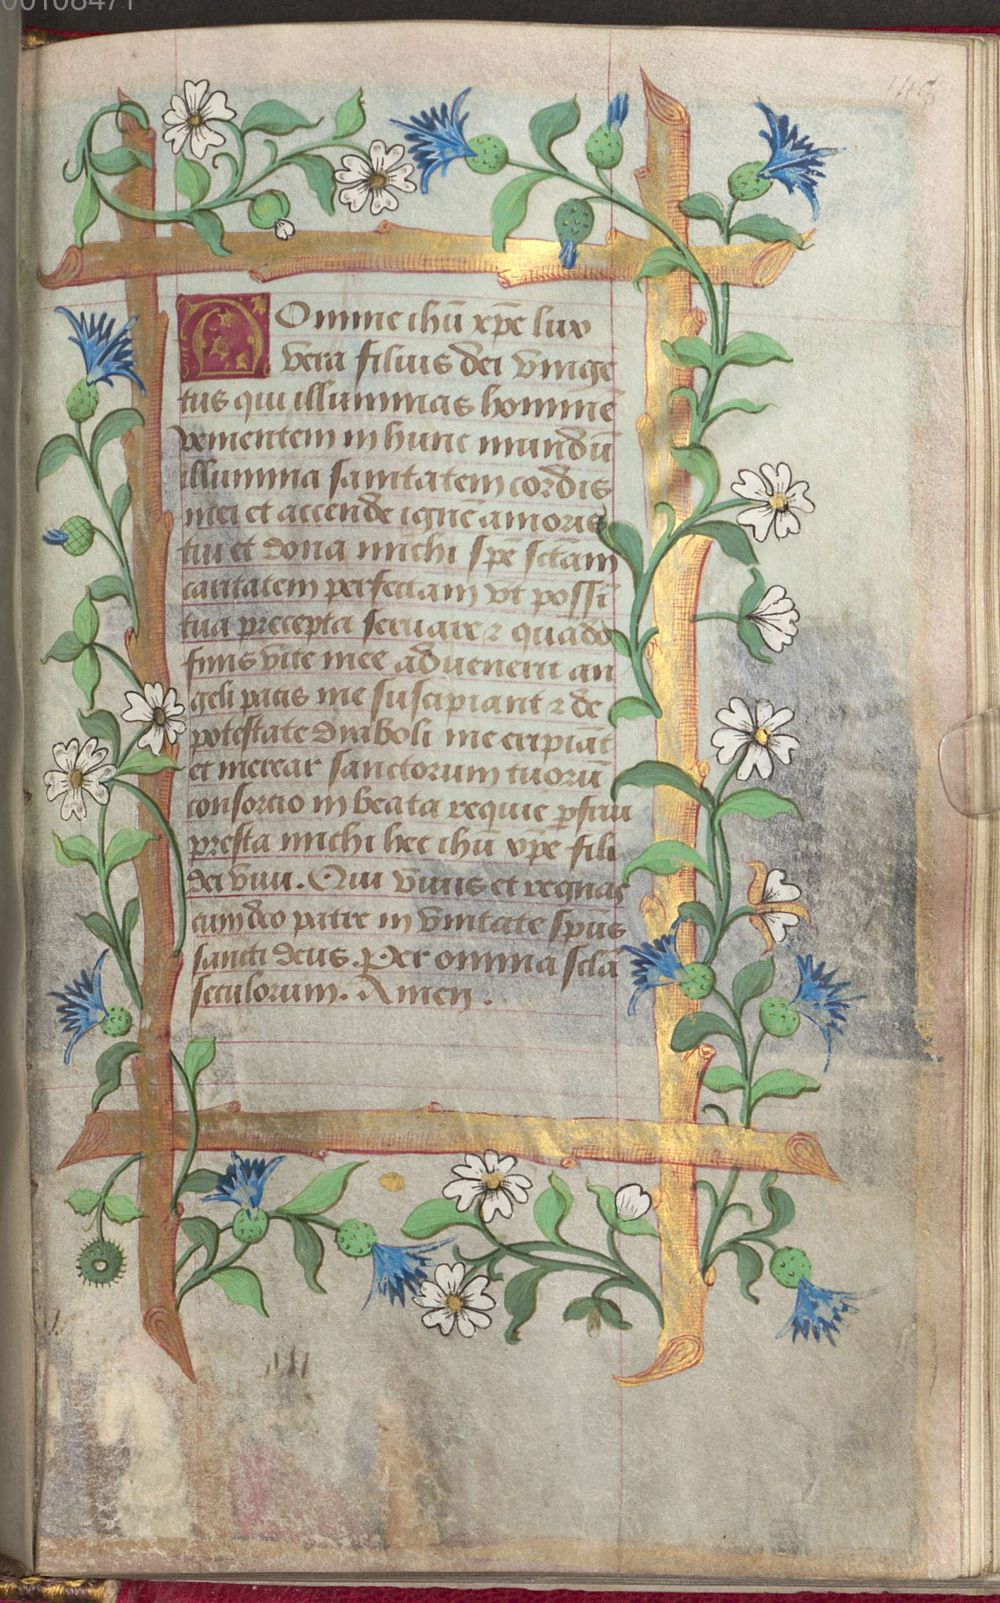 00108471
146
Domine ihū xp̄e lux
vera filius dei vnige
tus qui illuminas hominē
venientem in hunc mundū
illumina sanitatem cordis
mei et accende ignē amoris
tui et dona michi spē sctām
caritatem perfectam vt possī
tua precepta seruare ⁊ quādo
finis vite mee aduenerit an
geli pacis me suscipiant ⁊ de
potestate diaboli me eripiāt
et merear sanctorum tuorū
consorcio in beata requie
presta michi hec ihū xp̄e fili
dei viui. Qui viuis et regnas
cum deo patre in vnitate spūs
sancti deus. Per omnia sclā
seculorum. Amen.